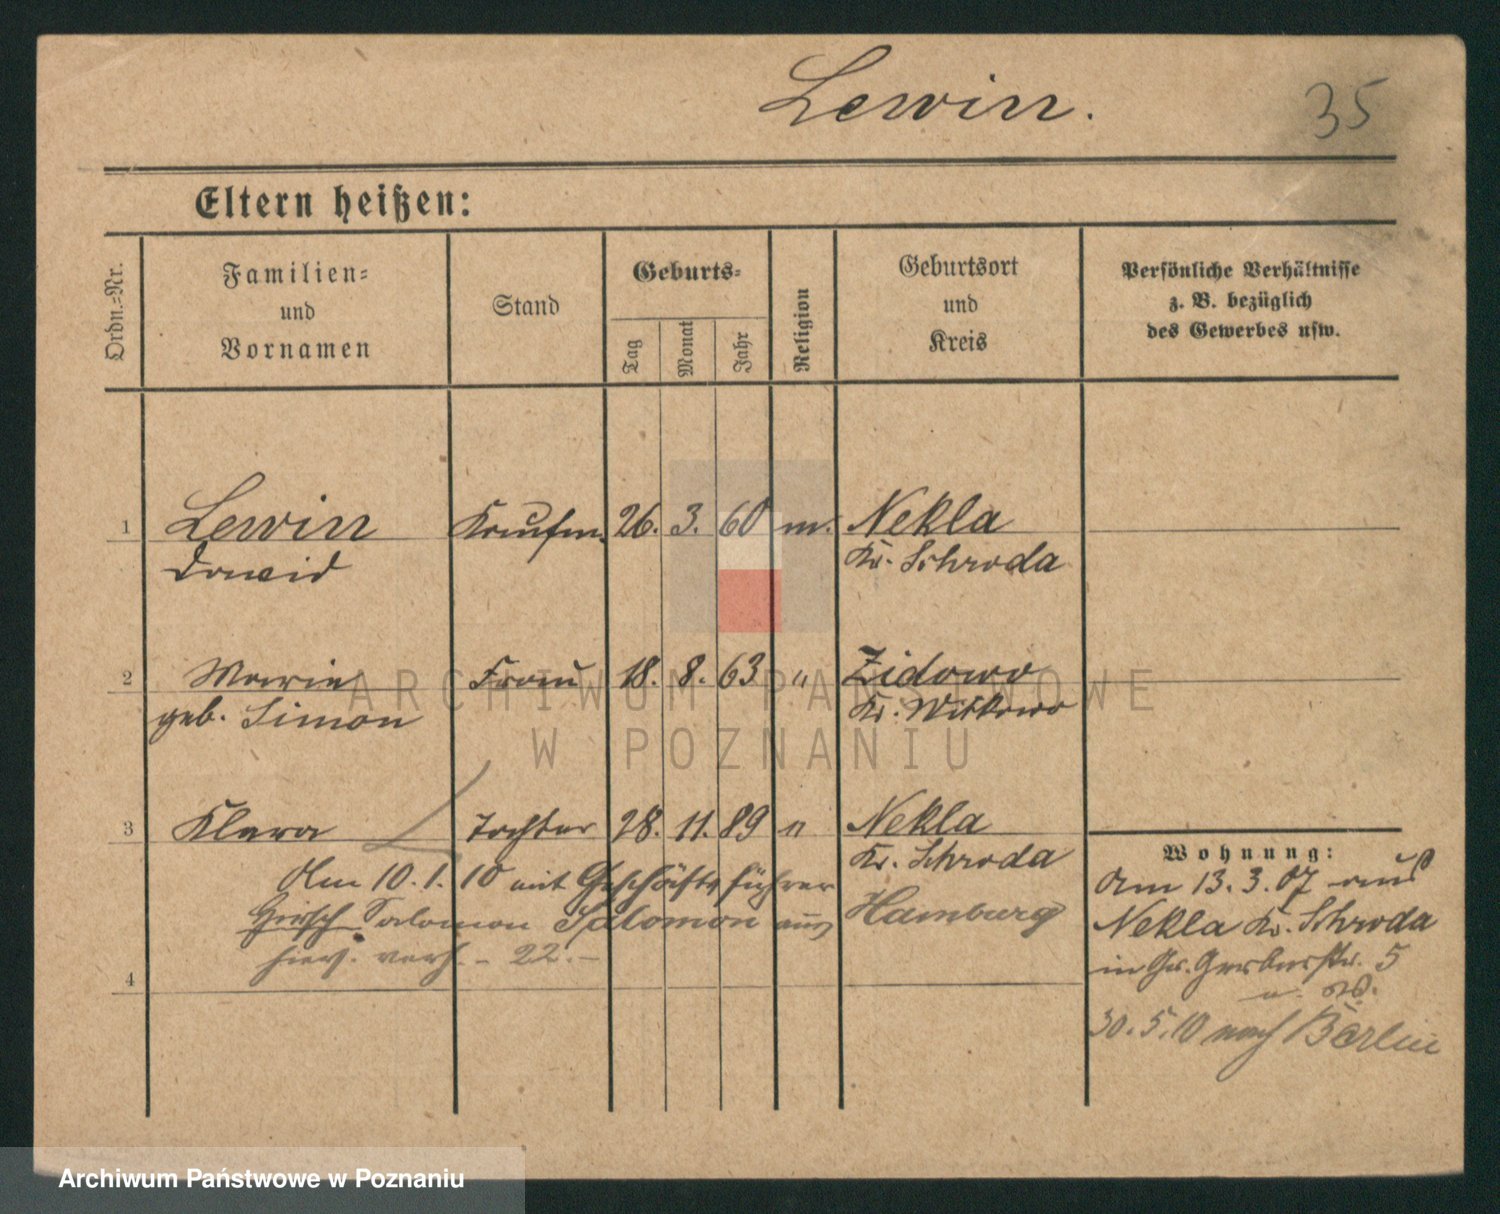 Lewin.
35
Eltern heißen:
Ordn.=Nr.
Familien=
und
Vornamen
Stand
Geburts=
Tag
Monat
Jahr
Religion
Geburtsort
und
Kreis
Persönliche Verhältnisse
z. B. bezüglich
des Gewerbes usw.
1 Lewin Kaufm. 26. 3. 60 m. Nekla
David Kr. Schroda
2 Marie Frau 18. 8. 63 " Zidowo
geb. Simon Kr. Witkowo
3 Klara Tochter 28. 11. 89 " Nekla
Kr. Schroda
Am 10. 1. 10 mit Geschäftsführer
Hirsch Salomon Salomon aus Hamburg
hier verh. - 22. -
4
Wohnung:
Am 13. 3. 07 aus
Nekla Kr. Schroda
in Gr. Gerberstr. 5
30. 5. 10 nach Berlin
ARCHIWUM PAŃSTWOWE
W POZNANIU
Archiwum Państwowe w Poznaniu